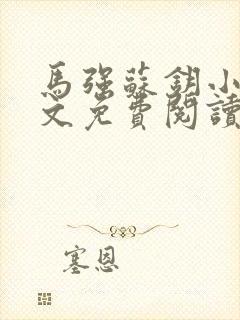 馬強蘇鈅小
文免費閱讀
塞恩